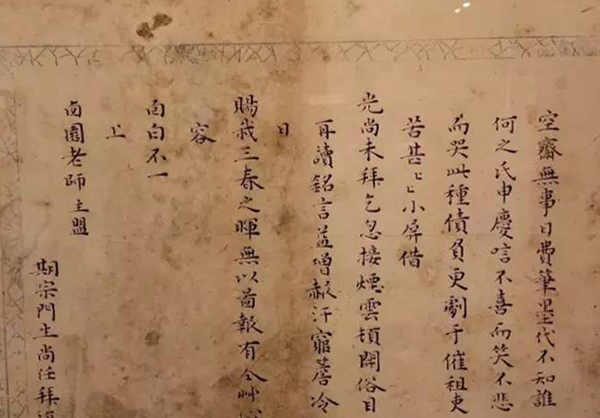 空齋無事日費筆墨代不知誰
何之氏申慶唁不喜而笑不悲
而哭此種債負更劇于催租吏
苦甚〻小屏借
光尚未拜乞忽接煙雲頓開俗目
再讀銘言益增赧汗寵荅冷
日
賜我三春之暉無以啚報有仝艸
容
面白不一
上
卣園老師主盟
期宗門生尚任拜